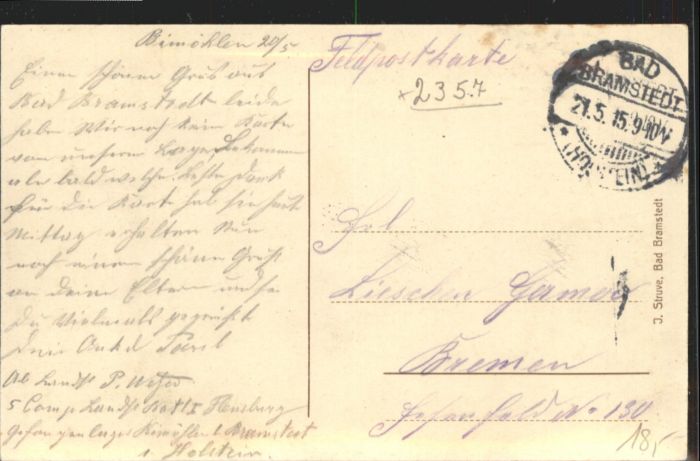 Bimöhlen 20/5
Einen schönen Gruß aus
Bad Bramstedt leider
haben Wir noch keine Karte
von unserem Lager bekommen
als bald welche. Besten Dank
für Die Karte hab sie heute
Mittag erhalten Nun
noch einen schönen Gruß
an deine Eltern und sei
Du Vielmals gegrüßt
Dein Onkel
Abs Landst P.
5 Comp Landst Batl I Flensburg
Gefangenlager Bimöhlen b Bramstedt
i Holstein.
Feldpostkarte
2357
BAD
BRAMSTEDT
21.5.15.9-10V
(HOLSTEIN)
Frl
Lieschen
Bremen
No 130
J. Struve, Bad Bramstedt
18,-